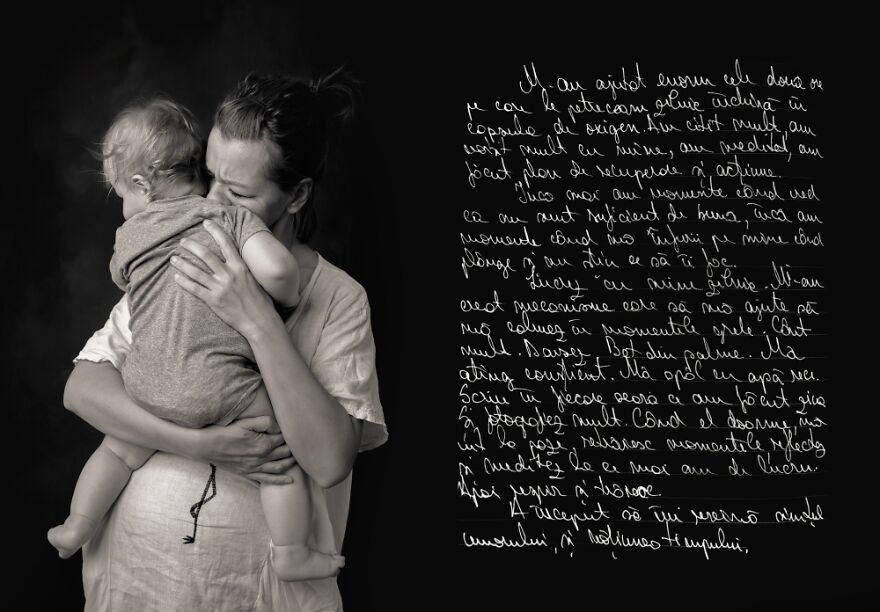 M-au ajutat enorm cele două ore
pe care le petreceam zilnic închisă în
capsula de oxigen. Am citit mult, am
vorbit mult cu mine, am meditat, am
făcut plan de recuperare și acțiune.
Încă mai am momente când cred
că nu sunt suficient de bună, încă am
momente când mă înfurii pe mine când
plânge și nu știu ce să îi fac.
Lucrez cu mine zilnic. Mi-am
creat mecanisme care să mă ajute să
mă calmez în momentele grele. Cânt
mult. Dansez. Bat din palme. Mă
ating conștient. Mă spăl cu apă rece.
Scriu în fiecare seară ce am făcut ziua
și fotografiez mult. Când el doarme, mă
uit la poze, retrăiesc momentele, reflectez
și meditez la ce mai am de lucru.
Apoi respir și trăiesc.
A început să îmi revină simțul
umorului, și noțiunea timpului.